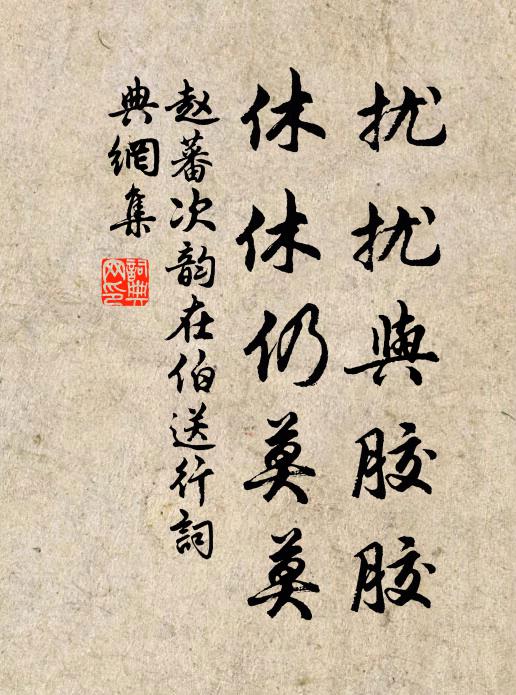 扰扰與胶胶
休休仍莫莫
赵蕃次韵在伯送行詞
典網集
詞典
网印